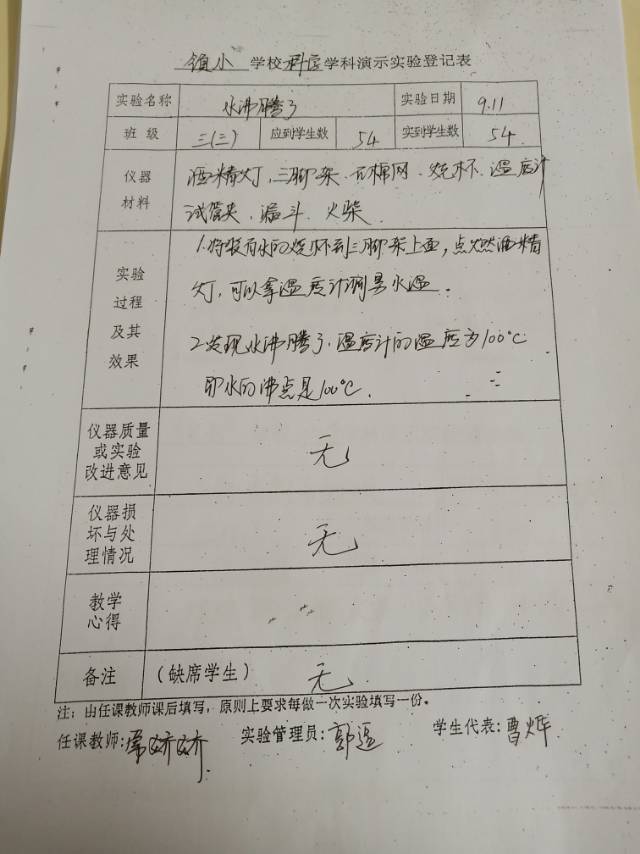 镇小 学校 科学 学科演示实验登记表
实验名称 水沸腾了 实验日期 9.11
班 级 三(二) 应到学生数 54 实到学生数 54
仪器材料 酒精灯、三脚架、石棉网、烧杯、温度计
试管夹、漏斗、火柴
实验
过程
及其
效果
1.将装有水的烧杯到三脚架上面,点燃酒精
灯,可以拿温度计测量水温。
2.发现水沸腾了,温度计的温度为100℃
即水的沸点是100℃.
仪器质量
或实验
改进意见
无
仪器损
坏与处
理情况
无
教学
心得
备注 (缺席学生) 无
注:由任课教师课后填写,原则上要求每做一次实验填写一份。
任课教师: 实验管理员: 学生代表:曹烨